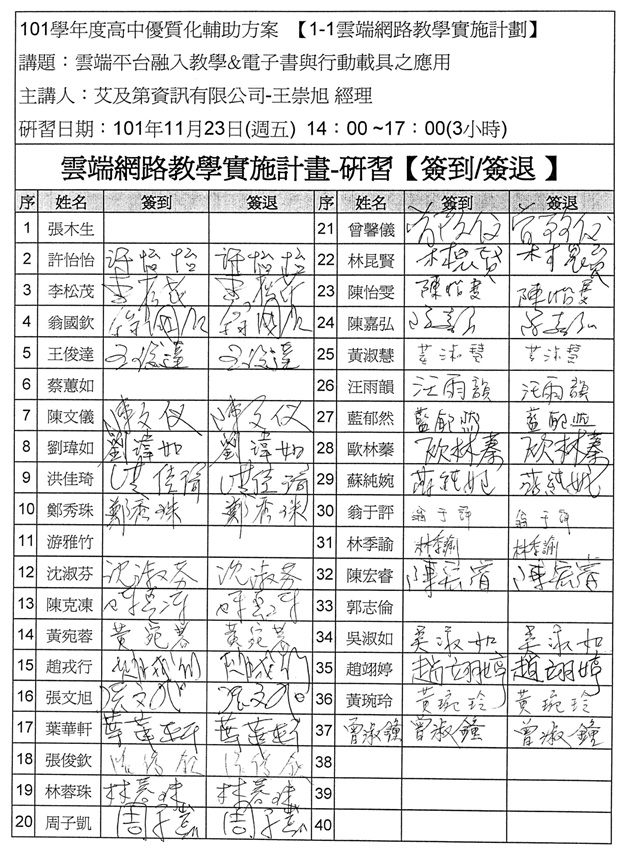 101學年度高中優質化輔助方案 【1-1雲端網路教學實施計劃】
講題：雲端平台融入教學&電子書與行動載具之應用
主講人：艾及第資訊有限公司-王崇旭 經理
研習日期：101年11月23日(週五) 14：00 ~17：00(3小時)
雲端網路教學實施計畫-研習【簽到/簽退 】
序 姓名 簽到 簽退 序 姓名 簽到 簽退
1 張木生 21 曾馨儀
2 許怡怡 許怡怡 許怡怡 22 林昆賢 林昆賢 林昆賢
3 李松茂 李松茂 李松茂 23 陳怡雯 陳怡雯 陳怡雯
4 翁國欽 翁國欽 翁國欽 24 陳嘉弘
5 王俊達 王俊達 王俊達 25 黃淑慧 黃淑慧 黃淑慧
6 蔡蕙如 26 汪雨韻 汪雨韻 汪雨韻
7 陳文儀 陳文仪 陳文仪 27 藍郁然 藍郁然 藍郁然
8 劉瑋如 劉瑋如 劉瑋如 28 歐林蓁 欧林蓁 欧林蓁
9 洪佳琦 洪佳琦 洪佳琦 29 蘇純婉 蘇純婉 蘇純婉
10 鄭秀珠 鄭秀珠 鄭秀珠 30 翁于評 翁于評 翁于評
11 游雅竹 31 林季諭 林季諭 林季諭
12 沈淑芬 沈淑芬 沈淑芬 32 陳宏睿 陳宏睿 陳宏睿
13 陳克凍 33 郭志倫
14 黃宛蓉 黃宛蓉 黃宛蓉 34 吳淑如 吳淑如 吳淑如
15 趙戎行 35 趙翊婷 趙翊婷 趙翊婷
16 張文旭 36 黃琬玲 黃琬玲 黃琬玲
17 葉華軒 葉華軒 葉華軒 37 曾淑鐘 曾淑鐘 曾淑鐘
18 張俊欽 38
19 林蓉珠 林蓉珠 林蓉珠 39
20 周子凱 周子凱 周子凱 40